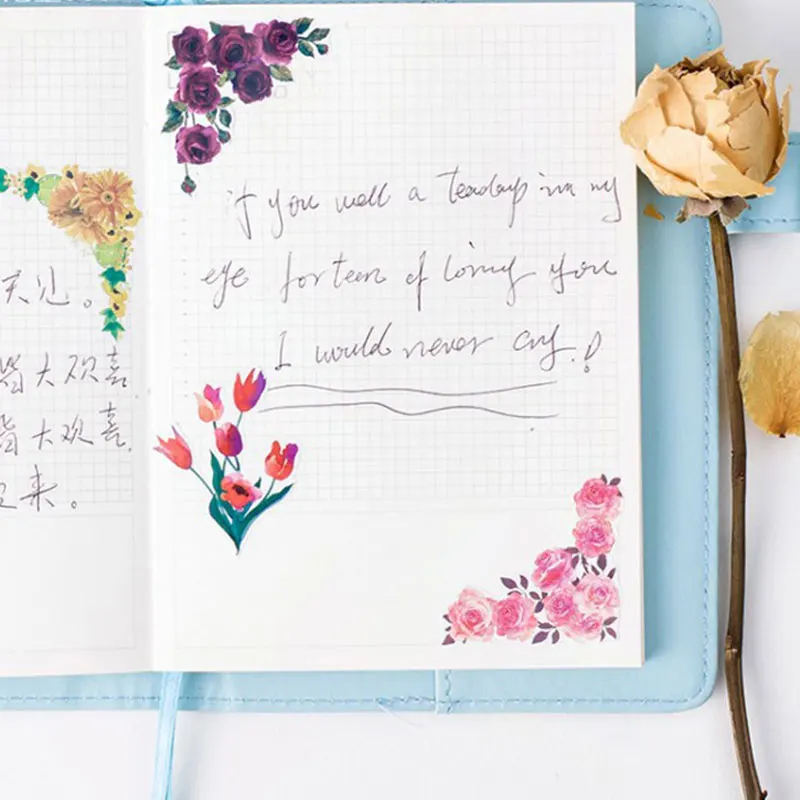 见。
皆大欢喜
皆大欢喜,
来。
if you well a teadap inn my
eye forteen of loving you
I would never cry.!